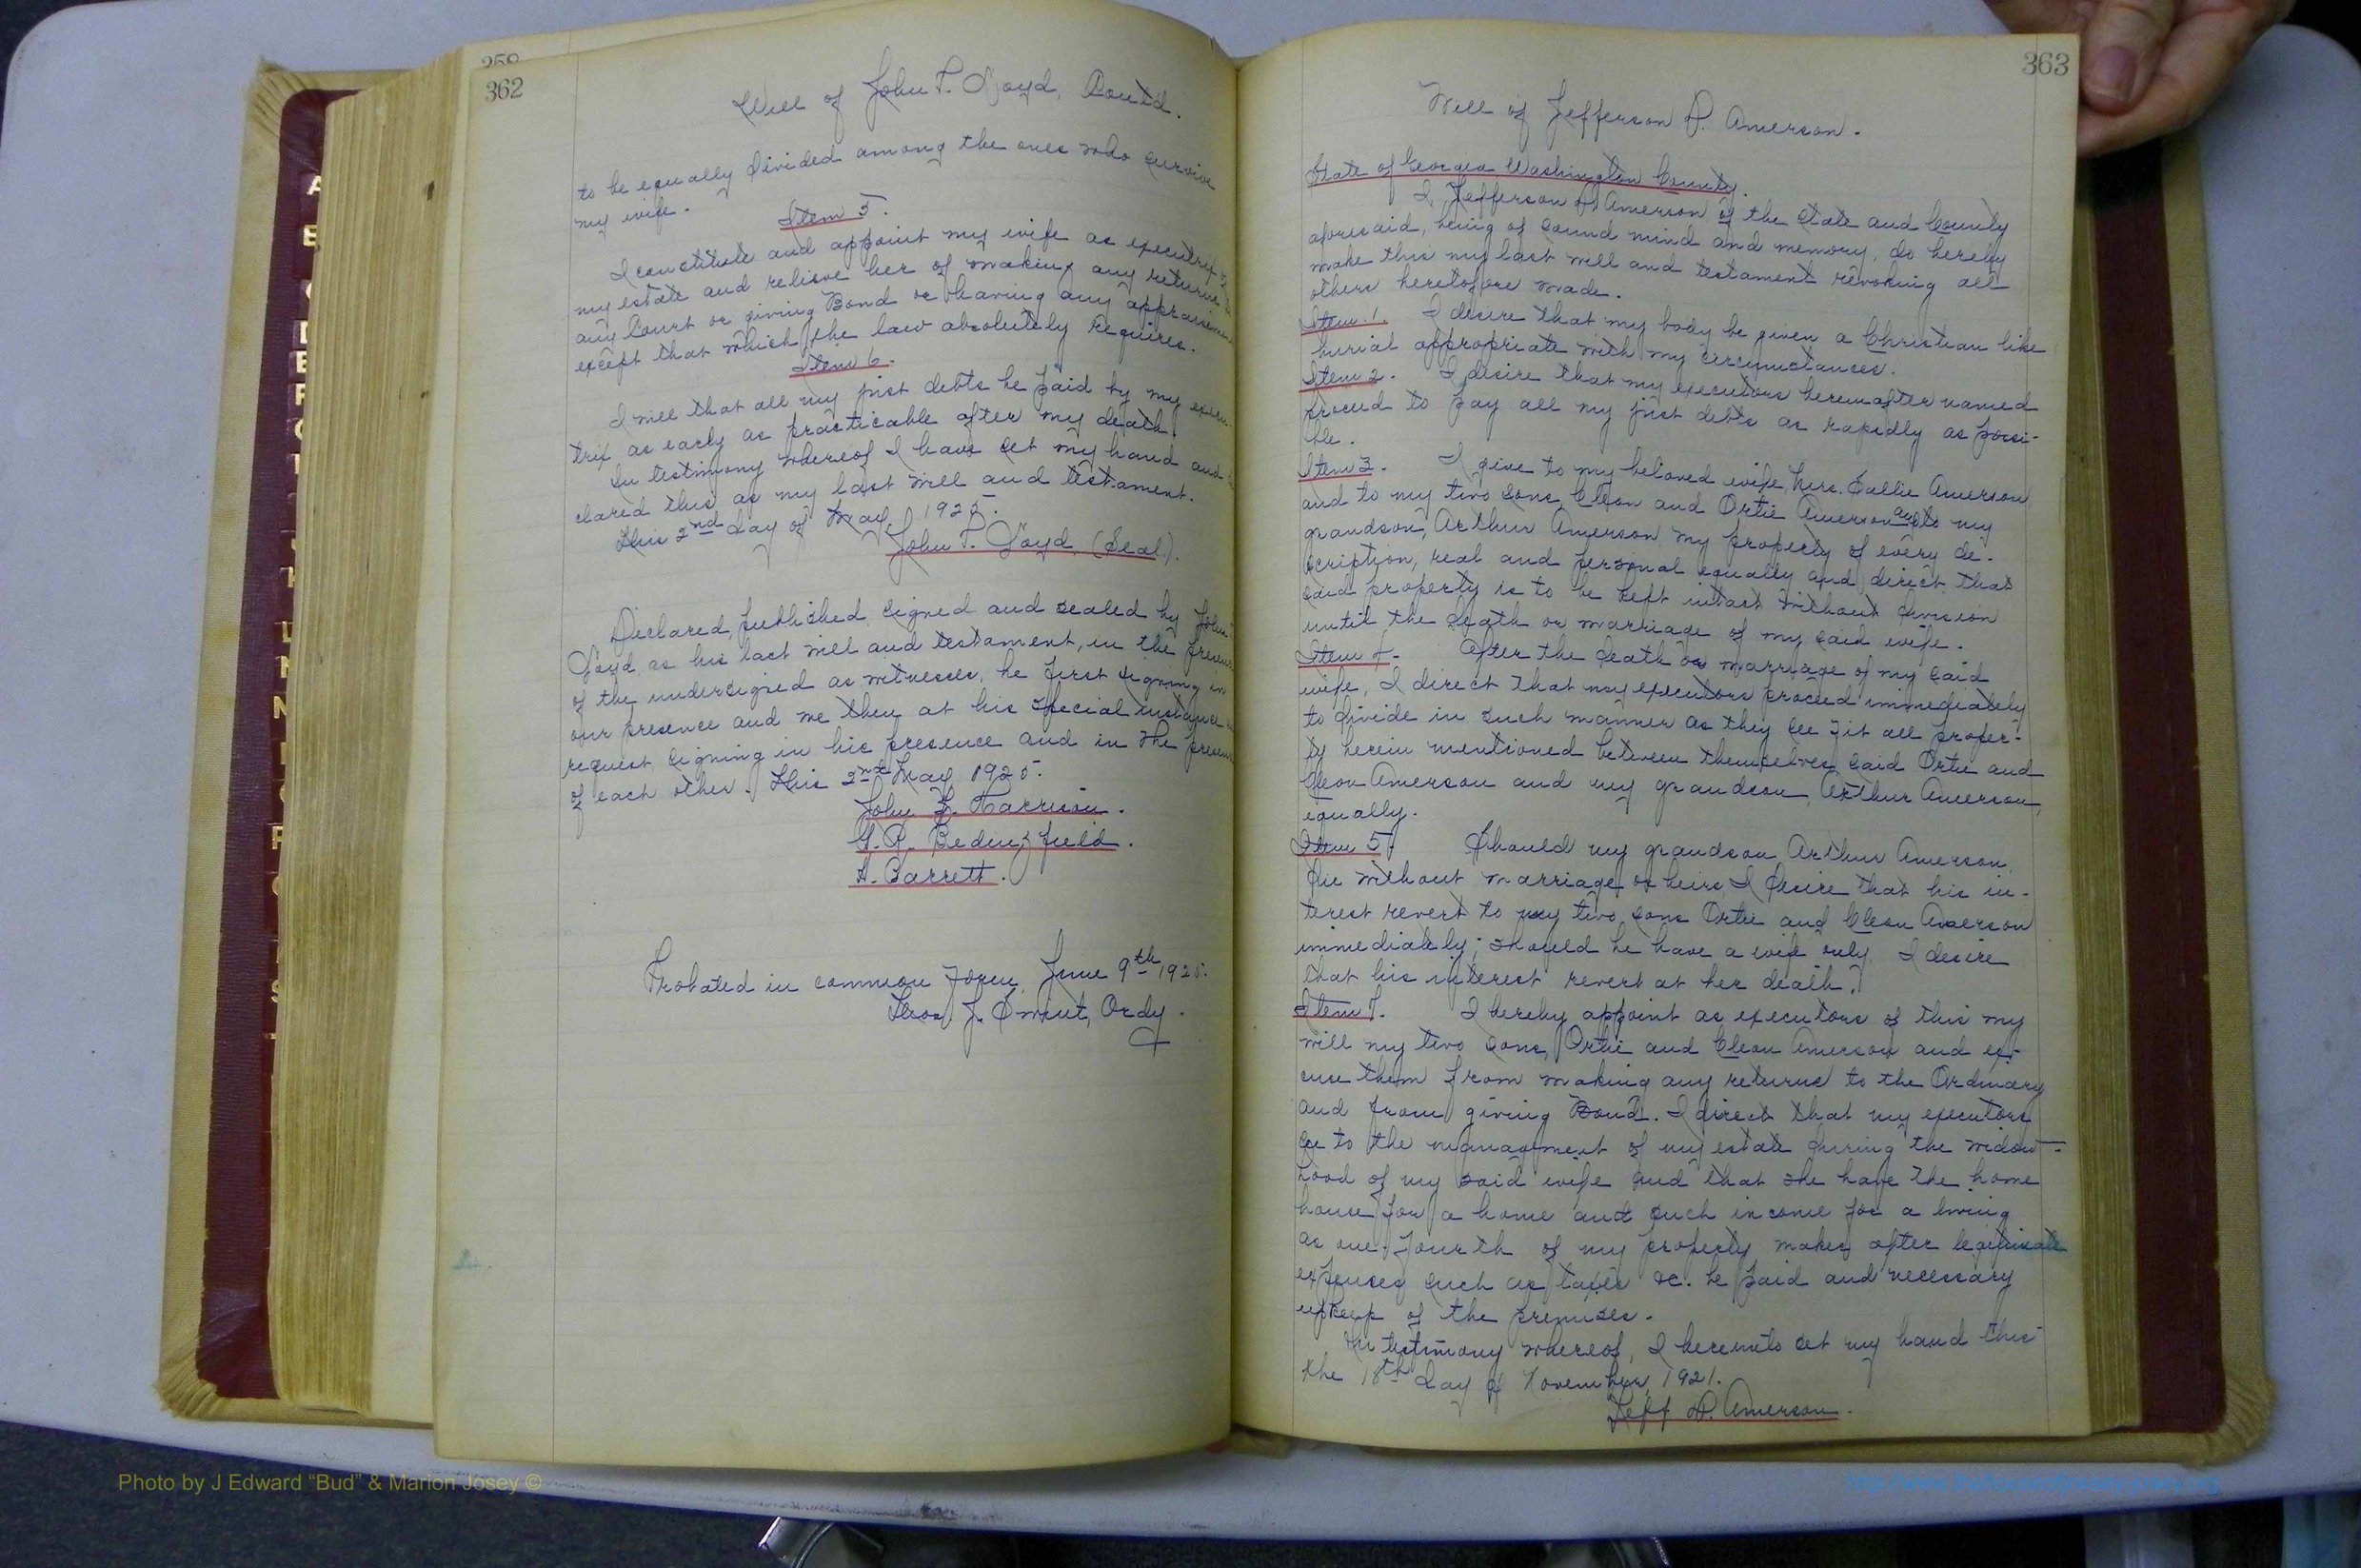 258
362
Will of John T. Loyd, Contd.
to be equally divided among the ones who survive
my wife.
Item 5.
I constitute and appoint my wife as executrix of
my estate and relieve her of making any returns
any Court or giving Bond or having any appraisement
except that which the law absolutely requires.
Item 6.
I will that all my just debts be paid by my execu-
trix as early as practicable after my death.
In testimony whereof I have set my hand and
clared this as my last will and testament.
This 2nd day of May, 1925.
John T. Loyd (Seal).
Declared, published, signed and sealed by John
Loyd as his last will and testament, in the presence
of the undersigned as witnesses, he first signing in
our presence and we then at his special instance
request signing in his presence and in the presence
of each other. This 2nd May 1925.
John Harrison.
G. R. Bedingfield.
A. Barrett.
Probated in common form, June 9th, 1925.
Thos. J. Swint, Ordy.
363
Will of Jefferson D. Amerson.
State of Georgia Washington County.
I, Jefferson D. Amerson of the State and County
aforesaid, being of sound mind and memory, do hereby
make this my last will and testament revoking all
others heretofore made.
Item 1. I desire that my body be given a Christian like
burial appropriate with my circumstances.
Item 2. I desire that my executors hereinafter named
proceed to pay all my just debts as rapidly as possi-
ble.
Item 3. I give to my beloved wife, Mrs. Sallie Amerson,
and to my two sons Cleon and Ortie Amerson and to my
grandson, Arthur Amerson my property of every de-
scription, real and personal equally and direct that
said property is to be kept intact without division
until the death or marriage of my said wife.
Item 4. After the death or marriage of my said
wife, I direct that my executors proceed immediately
to divide in such manner as they see fit all proper-
ty herein mentioned between themselves said Ortie and
Cleon Amerson and my grandson, Arthur Amerson,
equally.
Item 5. Should my grandson Arthur Amerson,
die without marriage or heirs, I desire that his in-
terest revert to my two sons Ortie and Cleon Amerson
immediately; should he have a wife only, I desire
that his interest revert at her death.
Item 7. I hereby appoint as executors of this my
will my two sons, Ortie and Cleon Amerson and ex-
cuse them from making any returns to the Ordinary
and from giving Bond. I direct that my executors
see to the managment of my estate during the widow-
hood of my said wife and that she have the home
house for a home and such income for a living
as one-fourth of my property makes after legitimate
expenses such as taxes &c. be paid and necessary
upkeep of the premises.
In testimony whereof, I hereunto set my hand this
the 18th day of November, 1921.
Jeff D. Amerson.
Photo by J Edward “Bud” & Marion Josey ©